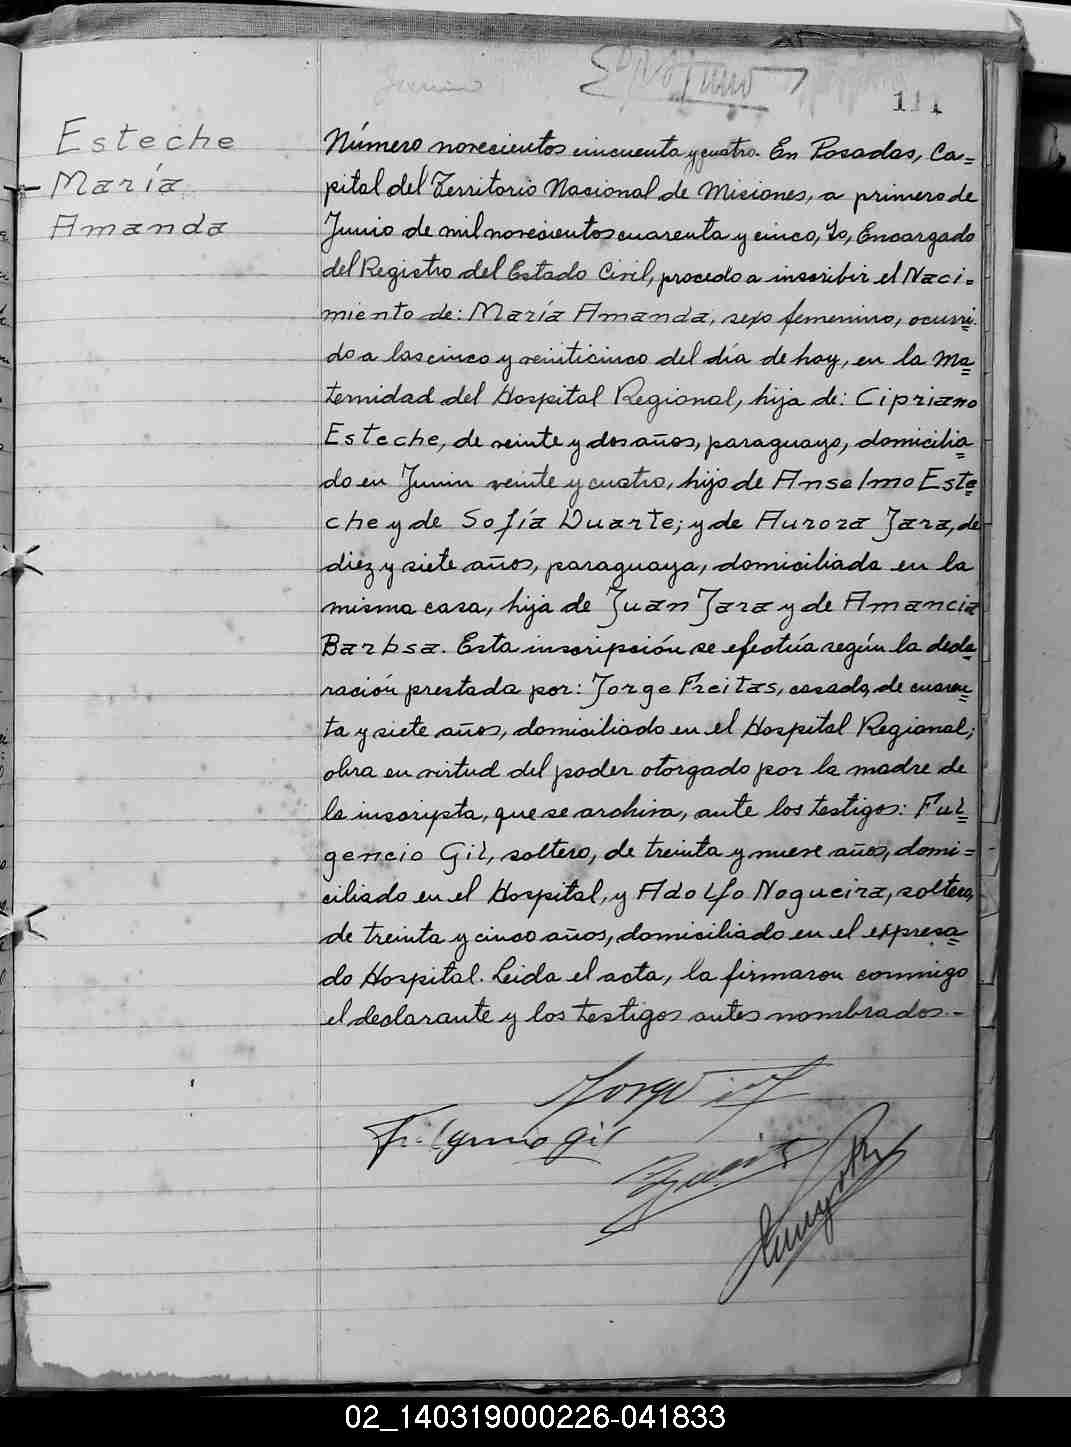 Junio
111
Esteche
María
Amanda
Número novecientos cincuenta y cuatro. En Posadas, Ca=
pital del Territorio Nacional de Misiones, a primero de
Junio de mil novecientos cuarenta y cinco, Yo, Encargado
del Registro del Estado Civil, procedo a inscribir el Naci=
miento de: María Amanda, sexo femenino, ocurri=
do a las cinco y veinticinco del día de hoy, en la Ma=
ternidad del Hospital Regional, hija de: Cipriano
Esteche, de veinte y dos años, paraguayo, domicilia=
do en Junin veinte y cuatro, hijo de Anselmo Este=
che y de Sofía Duarte; y de Aurora Jara, de
diez y siete años, paraguaya, domiciliada en la
misma casa, hija de Juan Jara y de Amancia
Barbsa. Esta inscripción se efectúa según la decla=
ración prestada por: Jorge Freitas, casado, de cuaren=
ta y siete años, domiciliado en el Hospital Regional;
obra en virtud del poder otorgado por la madre de
la inscripta, que se archiva, ante los testigos: Ful=
gencio Gil, soltero, de treinta y nueve años, domi=
ciliado en el Hospital, y Adolfo Nogueira, soltero,
de treinta y cinco años, domiciliado en el expresa=
do Hospital. Leida el acta, la firmaron conmigo
el declarante y los testigos antes nombrados.-
Jorge
Fulgencio Gil
02_140319000226-041833